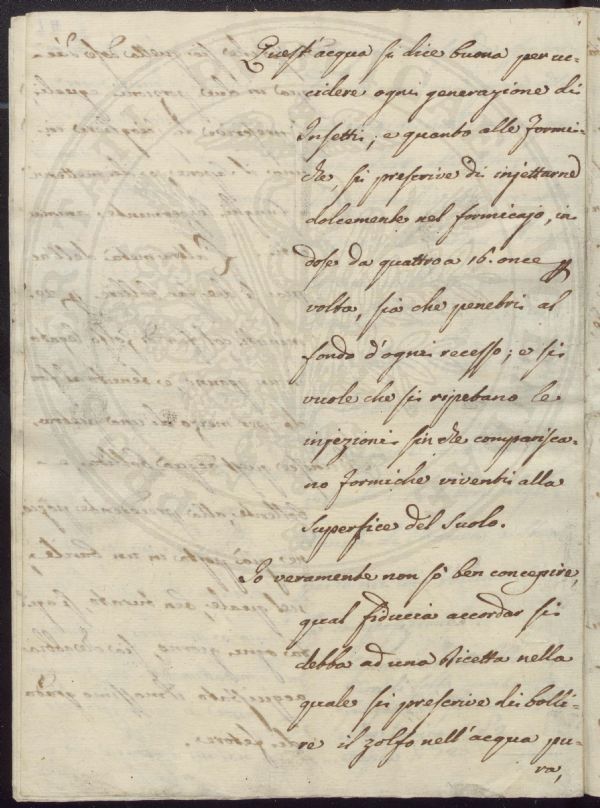 Quest'acqua si dice buona per uc-
cidere ogni generazione di
Insetti; e quanto alle formi-
che, si prescrive di injettarne
dolcemente nel formicajo, in
dose da quattro a 16. once
volta, sia che penetri al
fondo d'ogni recesso; e si
vuole che si ripetano le
injezioni sin che comparisca-
no formiche viventi alla
superfice del suolo.
Io veramente non sò ben concepire,
qual fiducia accordar si
debba ad una Ricetta nella
quale si prescrive di bolli-
re il zolfo nell'acqua pu-
ra,